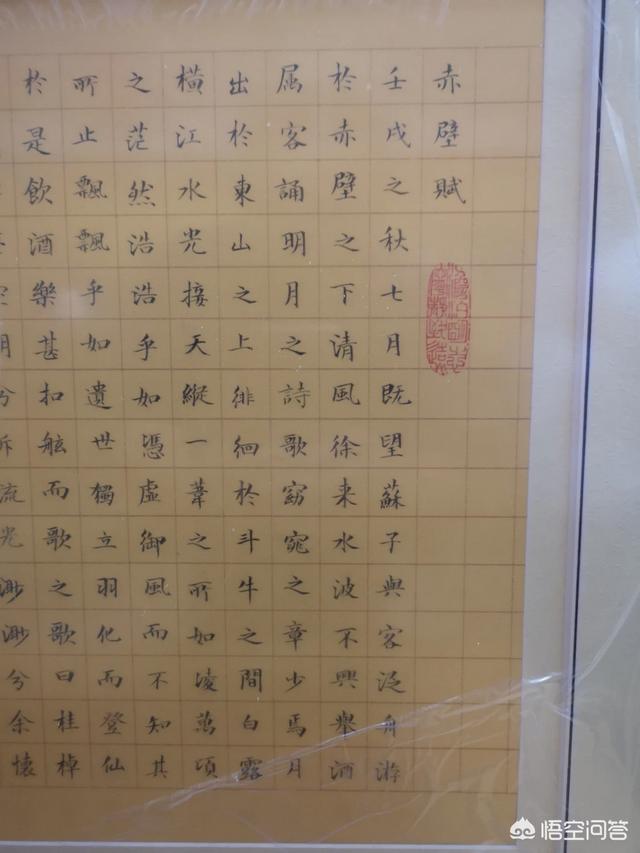 赤壁賦
壬戌之秋七月既望蘇子與客泛舟游
於赤壁之下清風徐来水波不興舉酒
属客誦明月之詩歌窈窕之章少焉月
出於東山之上徘徊於斗牛之間白露
橫江水光接天縱一葦之所如凌萬頃
之茫然浩浩乎如憑虛御風而不知其
所止飄飄乎如遺世獨立羽化而登仙
於是飲酒樂甚扣舷而歌之歌曰桂棹
兮泝流光渺渺兮余懷
悟空问答